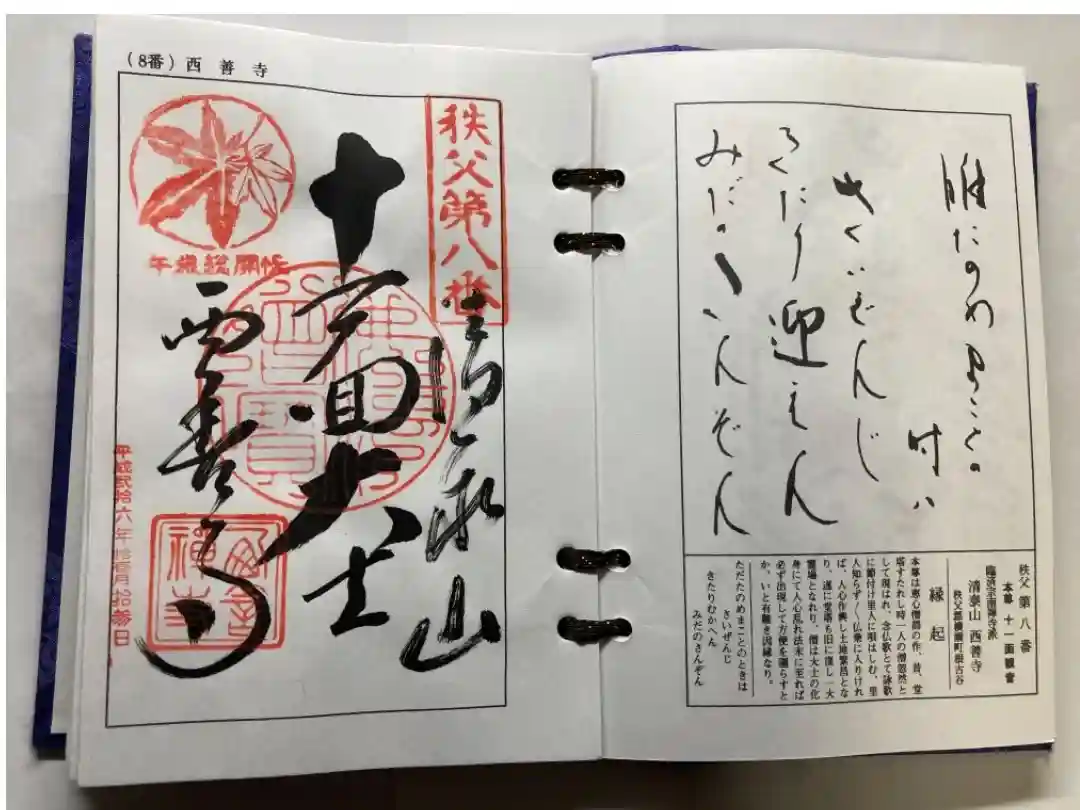 （8番）西善寺
秩父第八番
清泰山
十一面大士
西善寺
午歳総開帳
平成弐拾六年拾壱月
日
誰たのめまことの
時八
さいぜんじ
きたり迎えん
みだのさんぞん
秩父第八番
本尊 十一面観音
臨済宗南禅寺派
清泰山 西善寺
秩父郡横瀬町根古谷
縁起
本尊は恵心僧都の作、昔、堂
塔すたれし時一人の僧忽然と
して現はれ、念仏歌とて詠歌
に節付け里人に唄はしむ、里
人知らず〱仏乗に入りけれ
ば、人心作興し土地繁昌とな
り、遂に堂塔も旧に復し一大
霊場となれり、僧は大士の化
身にて人心乱れ法末に至れば
必ず出現して方便を廻らすと
か、いと有難き因縁なり。
ただたのめまことのときは
さいぜんじ
きたりむかへん
みだのさんぞん